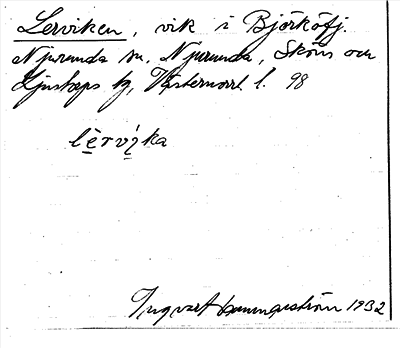 Lerviken, vik i Björköfj.
Njurunda sn. Njurunda, Sköns och
Ljustorps tg, Västernorrl. l. 98
lèrvíka
Ingvar Hammarström 1932